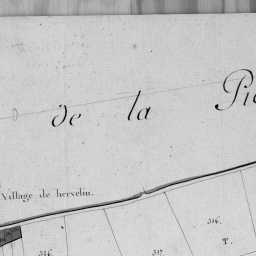 de la Pi
Village de hervelin.
316.
T.
316.
317.